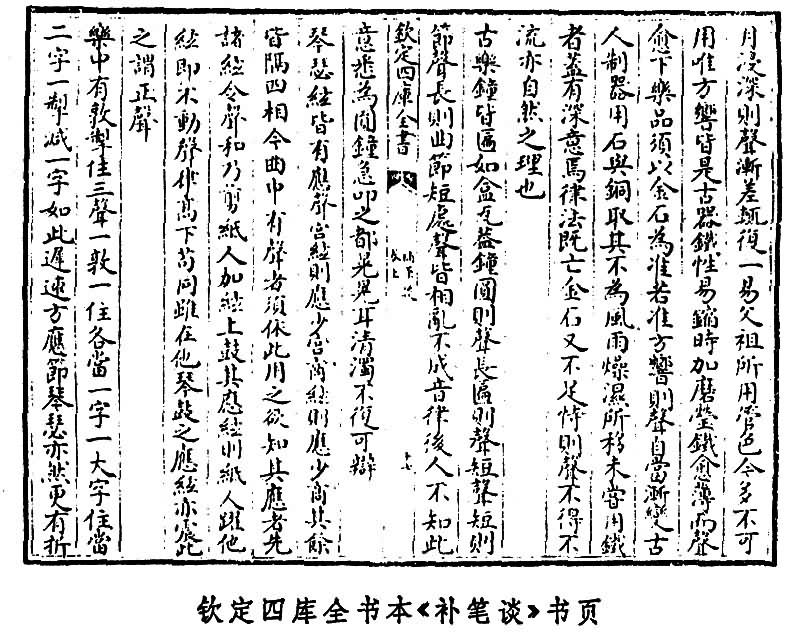 月浸深則聲漸差輒復一易父祖所用管色今多不可
用唯方響皆是古器鐵性易縮時加磨瑩鐵愈薄而聲
愈下樂品須以金石為准若准方響則聲自當漸變古
人制器用石與銅取其不為風雨燥濕所移未嘗用鐵
者蓋有深意焉律法既亡金石又不足恃則聲不得不
流亦自然之理也
古樂鐘皆匾如盒瓦蓋鐘圓則聲長匾則聲短聲短則
節聲長則曲節短處聲皆相亂不成音律後人不知此
欽定四庫全書
卷上
十七
意悉為圓鐘急叩之都晃晃耳清濁不復可辯
琴瑟絃皆有應聲宮絃則應少宮商絃則應少商其餘
皆隔四相今曲中有聲者須依此用之欲知其應者先
諸絃令聲和乃剪紙人加絃上鼓其應絃則紙人躍他
絃即不動聲律高下苟同雖在他琴鼓之應絃亦震此
之謂正聲
樂中有敦掣住三聲一敦一住各當一字一大字住當
二字一掣減一字如此遲速方應節琴瑟亦然更有折
钦定四库全书本《补笔谈》书页